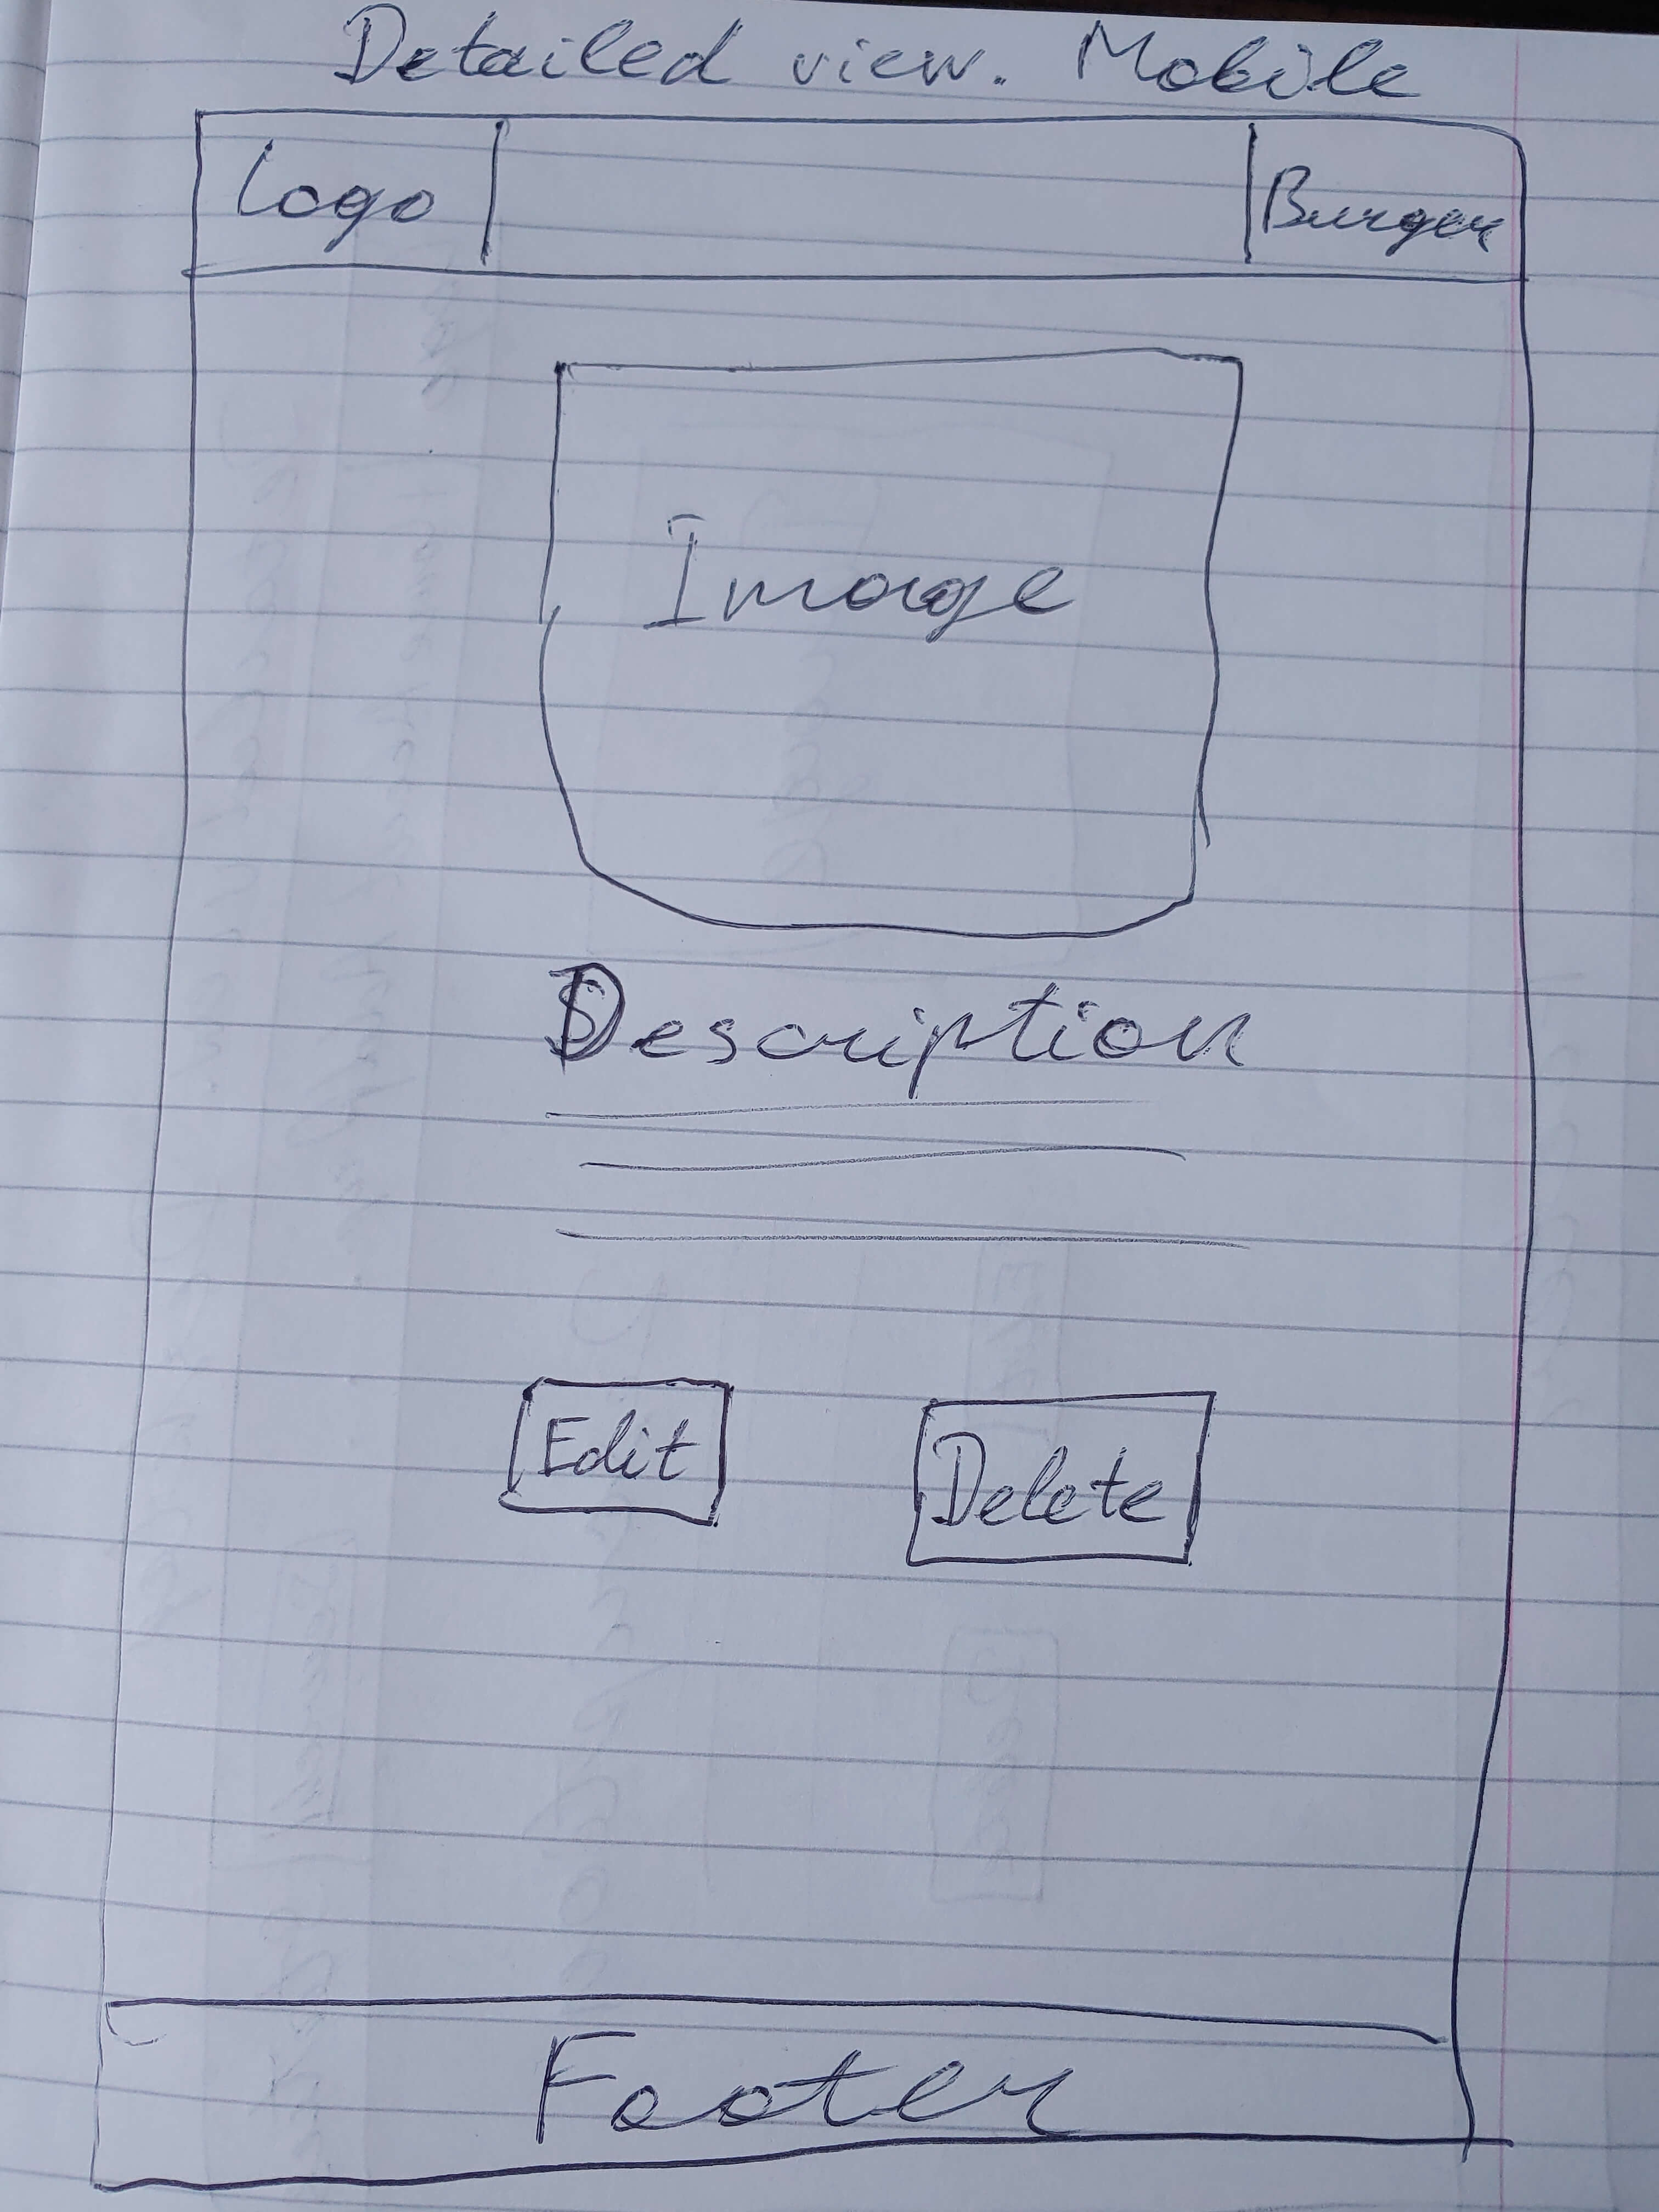 Detailed view. Mobile
Logo
Burger
Image
Description
Edit
Delete
Footer